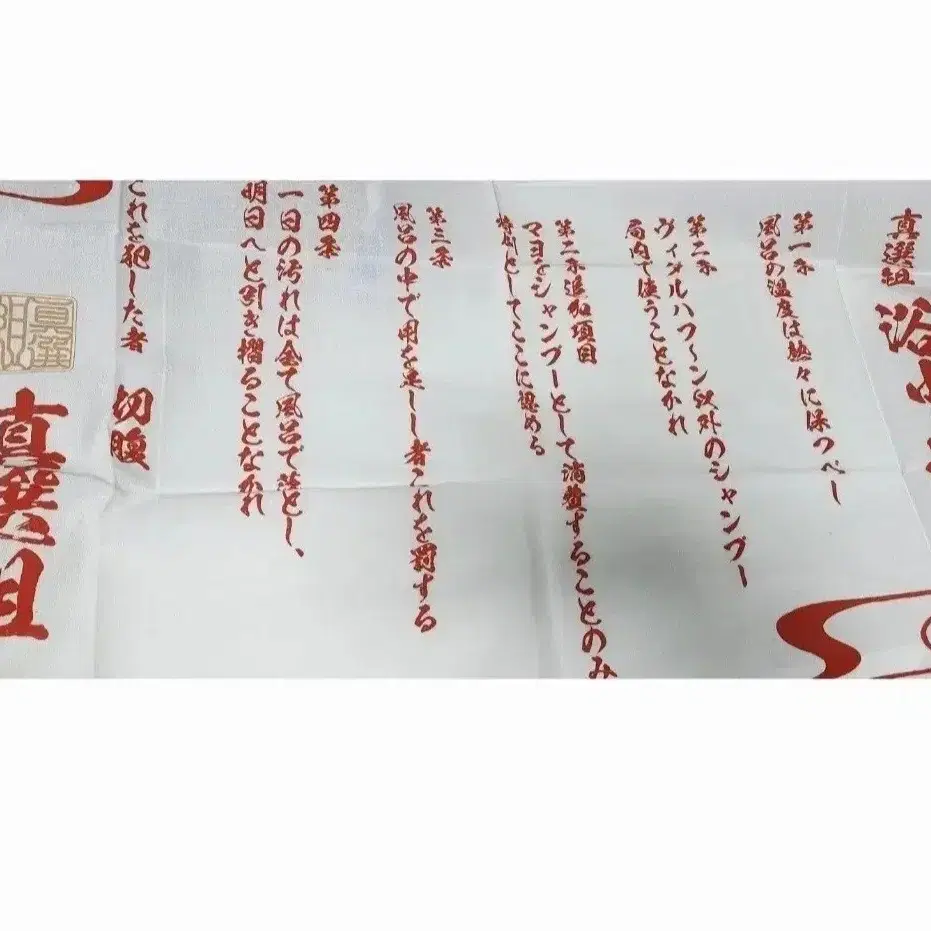 真選組
浴
第一条
風呂の温度は熱々に保つべし
第二条
ヴィダルハフ〜ン以外のシャンプー
局内で使うことなかれ
第二条追加項目
マヨをシャンプーとして消費することのみ
特別としてここに認める
第三条
風呂の中で用を足し者これを罰する
第四条
一日の汚れは全て風呂で落とし、
明日へと引き摺ることなかれ
これを犯した者 切腹
真選組
真選組